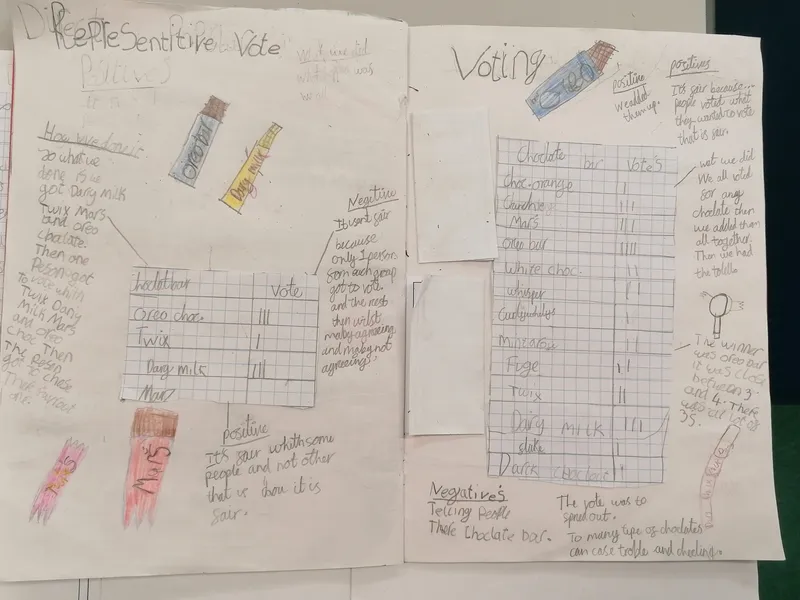 Representitive Vote
Positives
How we done it
So what we
done is we
got Dary Milk
Twix Mars
and oreo
choclate.
Then one
Peson got
to vote whith
Twix Dary
Milk Mars
and Oreo
choc Then
The Pesen
got To chose
Their Favourt
one.
Oreo bar
Dary milk
Negitive
It isnt fair
because
only 1 person
from each group
got to vote
and the rest
then wilst
maby agreeing
and maby not
agreeings.
Choclat bar Vote
Oreo choc. III
Twix I
Dary milk III
Mars
Positive
It's fair whith some
people and not other
that is how it is
fair.
Mars
Mars
Voting
Oreo
positive
We added
them up.
positives
It's fair because...
people voted what
they wanted to vote
that is fair.
Choclate bar Vote's
Choc-orange I
III
Mars III
Oreo bar IIII
White choc. II
Whisper II
Curlywhirlys I
Fuge II
Twix II
Dairy milk III
flake I
Darck choclate I
wat we did
We all voted
for any
choclate then
we added them
all together.
Then we had
the
The winner
was oreo bar
it was close
between 3
and 4. There
was
35.
Negative's
Telling People
There Choclate bar.
The vote was to
spred out.
To many tipe of choclates
can case troble and cheeting.